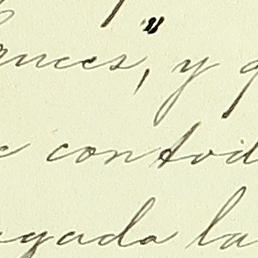 ances," y q
e contod
egada la